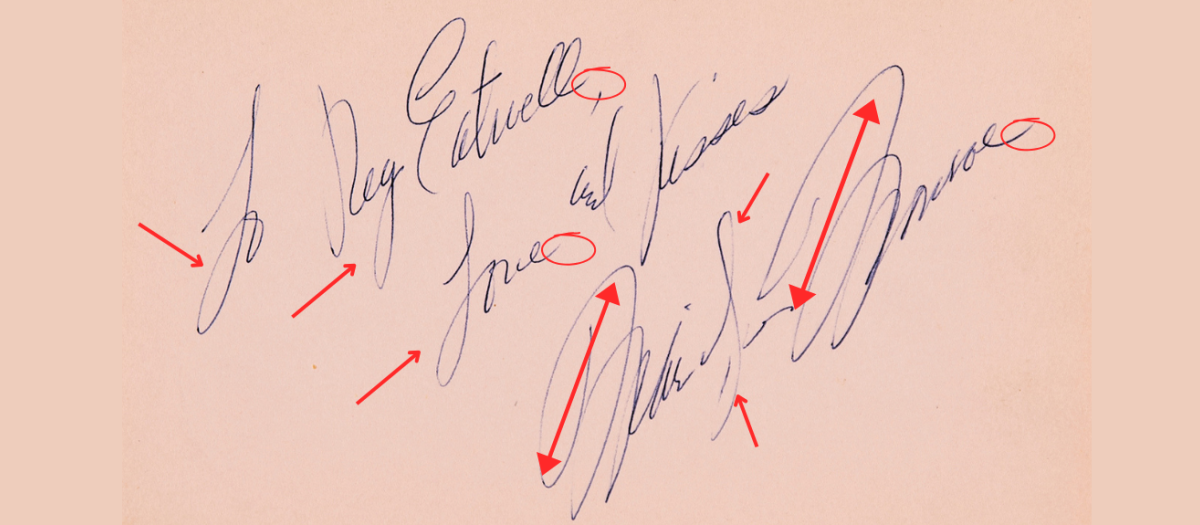 To Reg Eatwell,
Love and Kisses
Marilyn Monroe